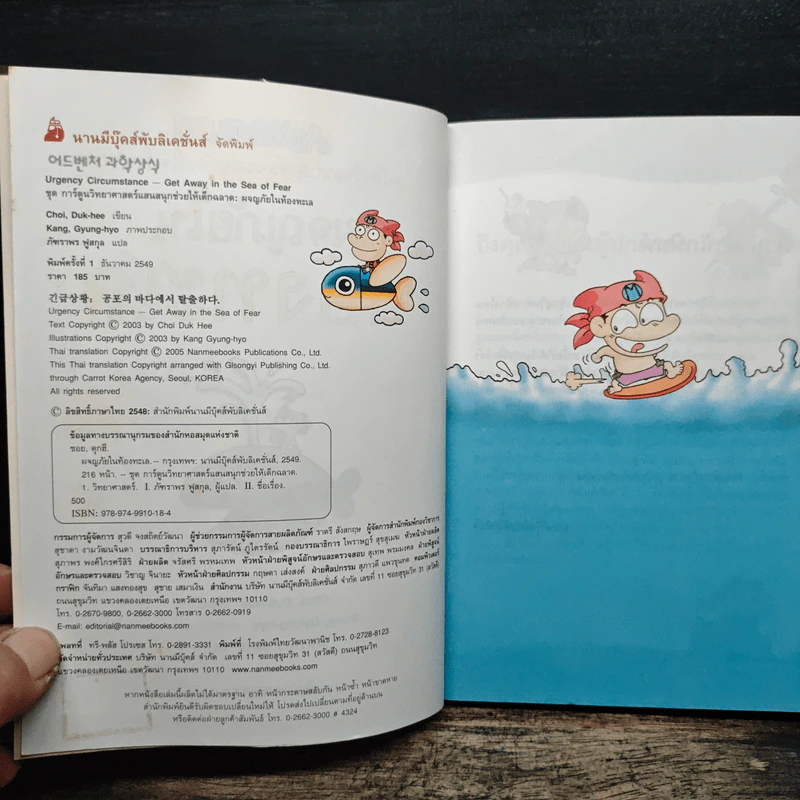 นานมีบุ๊คส์พับลิเคชั่นส์ จัดพิมพ์
어드벤처 과학상식
Urgency Circumstance — Get Away in the Sea of Fear
ชุด การ์ตูนวิทยาศาสตร์แสนสนุกช่วยให้เด็กฉลาด: ผจญภัยในท้องทะเล
Choi, Duk-hee เขียน
Kang, Gyung-hyo ภาพประกอบ
ภัทราพร ฟูสกุล แปล
พิมพ์ครั้งที่ 1 ธันวาคม 2549
ราคา 185 บาท
긴급상황: 공포의 바다에서 탈출하다.
Urgency Circumstance — Get Away in the Sea of Fear
Text Copyright © 2003 by Choi Duk Hee
Illustrations Copyright © 2003 by Kang Gyung-hyo
Thai translation Copyright © 2005 Nanmeebooks Publications Co., Ltd.
This Thai translation Copyright arranged with Glsongyi Publishing Co., Ltd.
through Carrot Korea Agency, Seoul, KOREA
All rights reserved
© ลิขสิทธิ์ภาษาไทย 2548: สำนักพิมพ์นานมีบุ๊คส์พับลิเคชั่นส์
ข้อมูลทางบรรณานุกรมของสำนักหอสมุดแห่งชาติ
ชอย, ดุกฮี.
ผจญภัยในท้องทะเล.— กรุงเทพฯ: นานมีบุ๊คส์พับลิเคชั่นส์, 2549.
216 หน้า.— ชุด การ์ตูนวิทยาศาสตร์แสนสนุกช่วยให้เด็กฉลาด.
1. วิทยาศาสตร์. I. ภัทราพร ฟูสกุล, ผู้แปล. II. ชื่อเรื่อง.
500
ISBN: 978-974-9910-18-4
กรรมการผู้จัดการ สุวดี จงสถิตย์วัฒนา ผู้ช่วยกรรมการผู้จัดการสายผลิตภัณฑ์ ราตรี สังกฤษ ผู้จัดการสำนักพิมพ์กองวิชาการ
สุชาดา งามวัฒนจินดา บรรณาธิการบริหาร สุภารัตน์ ภูไตรรัตน์ กองบรรณาธิการ ไพราษฎร์ สุขสุเมฆ หัวหน้าฝ่ายผลิต
สุภาพร พงศ์ไกรศรีสิริ ฝ่ายผลิต จรัสศรี พรหมเทพ หัวหน้าฝ่ายพิสูจน์อักษรและตรวจสอบ สุเทพ พรมมงคล ฝ่ายพิสูจน์
อักษรและตรวจสอบ วิชาญ จินายะ หัวหน้าฝ่ายศิลปกรรม กฤษดา เส่งสงค์ ฝ่ายศิลปกรรม สุภาวดี แพวขุนทด คอมพิวเตอร์
กราฟิก จันทิมา แสงทองสุข สุชาย เสมาเงิน สำนักงาน บริษัท นานมีบุ๊คส์พับลิเคชั่นส์ จำกัด เลขที่ 11 ซอยสุขุมวิท 31 (สวัสดี)
ถนนสุขุมวิท แขวงคลองเตยเหนือ เขตวัฒนา กรุงเทพฯ 10110
โทร. 0-2670-9800, 0-2662-3000 โทรสาร 0-2662-0919
E-mail: editorial@nanmeebooks.com
เพลทที่ ทรี-พลัส โปรเซส โทร. 0-2891-3331 พิมพ์ที่ โรงพิมพ์ไทยวัฒนาพานิช โทร. 0-2728-8123
จัดจำหน่ายทั่วประเทศ บริษัท นานมีบุ๊คส์ จำกัด เลขที่ 11 ซอยสุขุมวิท 31 (สวัสดี) ถนนสุขุมวิท
แขวงคลองเตยเหนือ เขตวัฒนา กรุงเทพฯ 10110 www.nanmeebooks.com
หากหนังสือเล่มนี้ผลิตไม่ได้มาตรฐาน อาทิ หน้ากระดาษสลับกัน หน้าซ้ำ หน้าขาดหาย
สำนักพิมพ์ยินดีรับผิดชอบเปลี่ยนใหม่ให้ โปรดส่งไปเปลี่ยนตามที่อยู่ด้านบน
หรือติดต่อฝ่ายลูกค้าสัมพันธ์ โทร. 0-2662-3000 # 4324
M
M